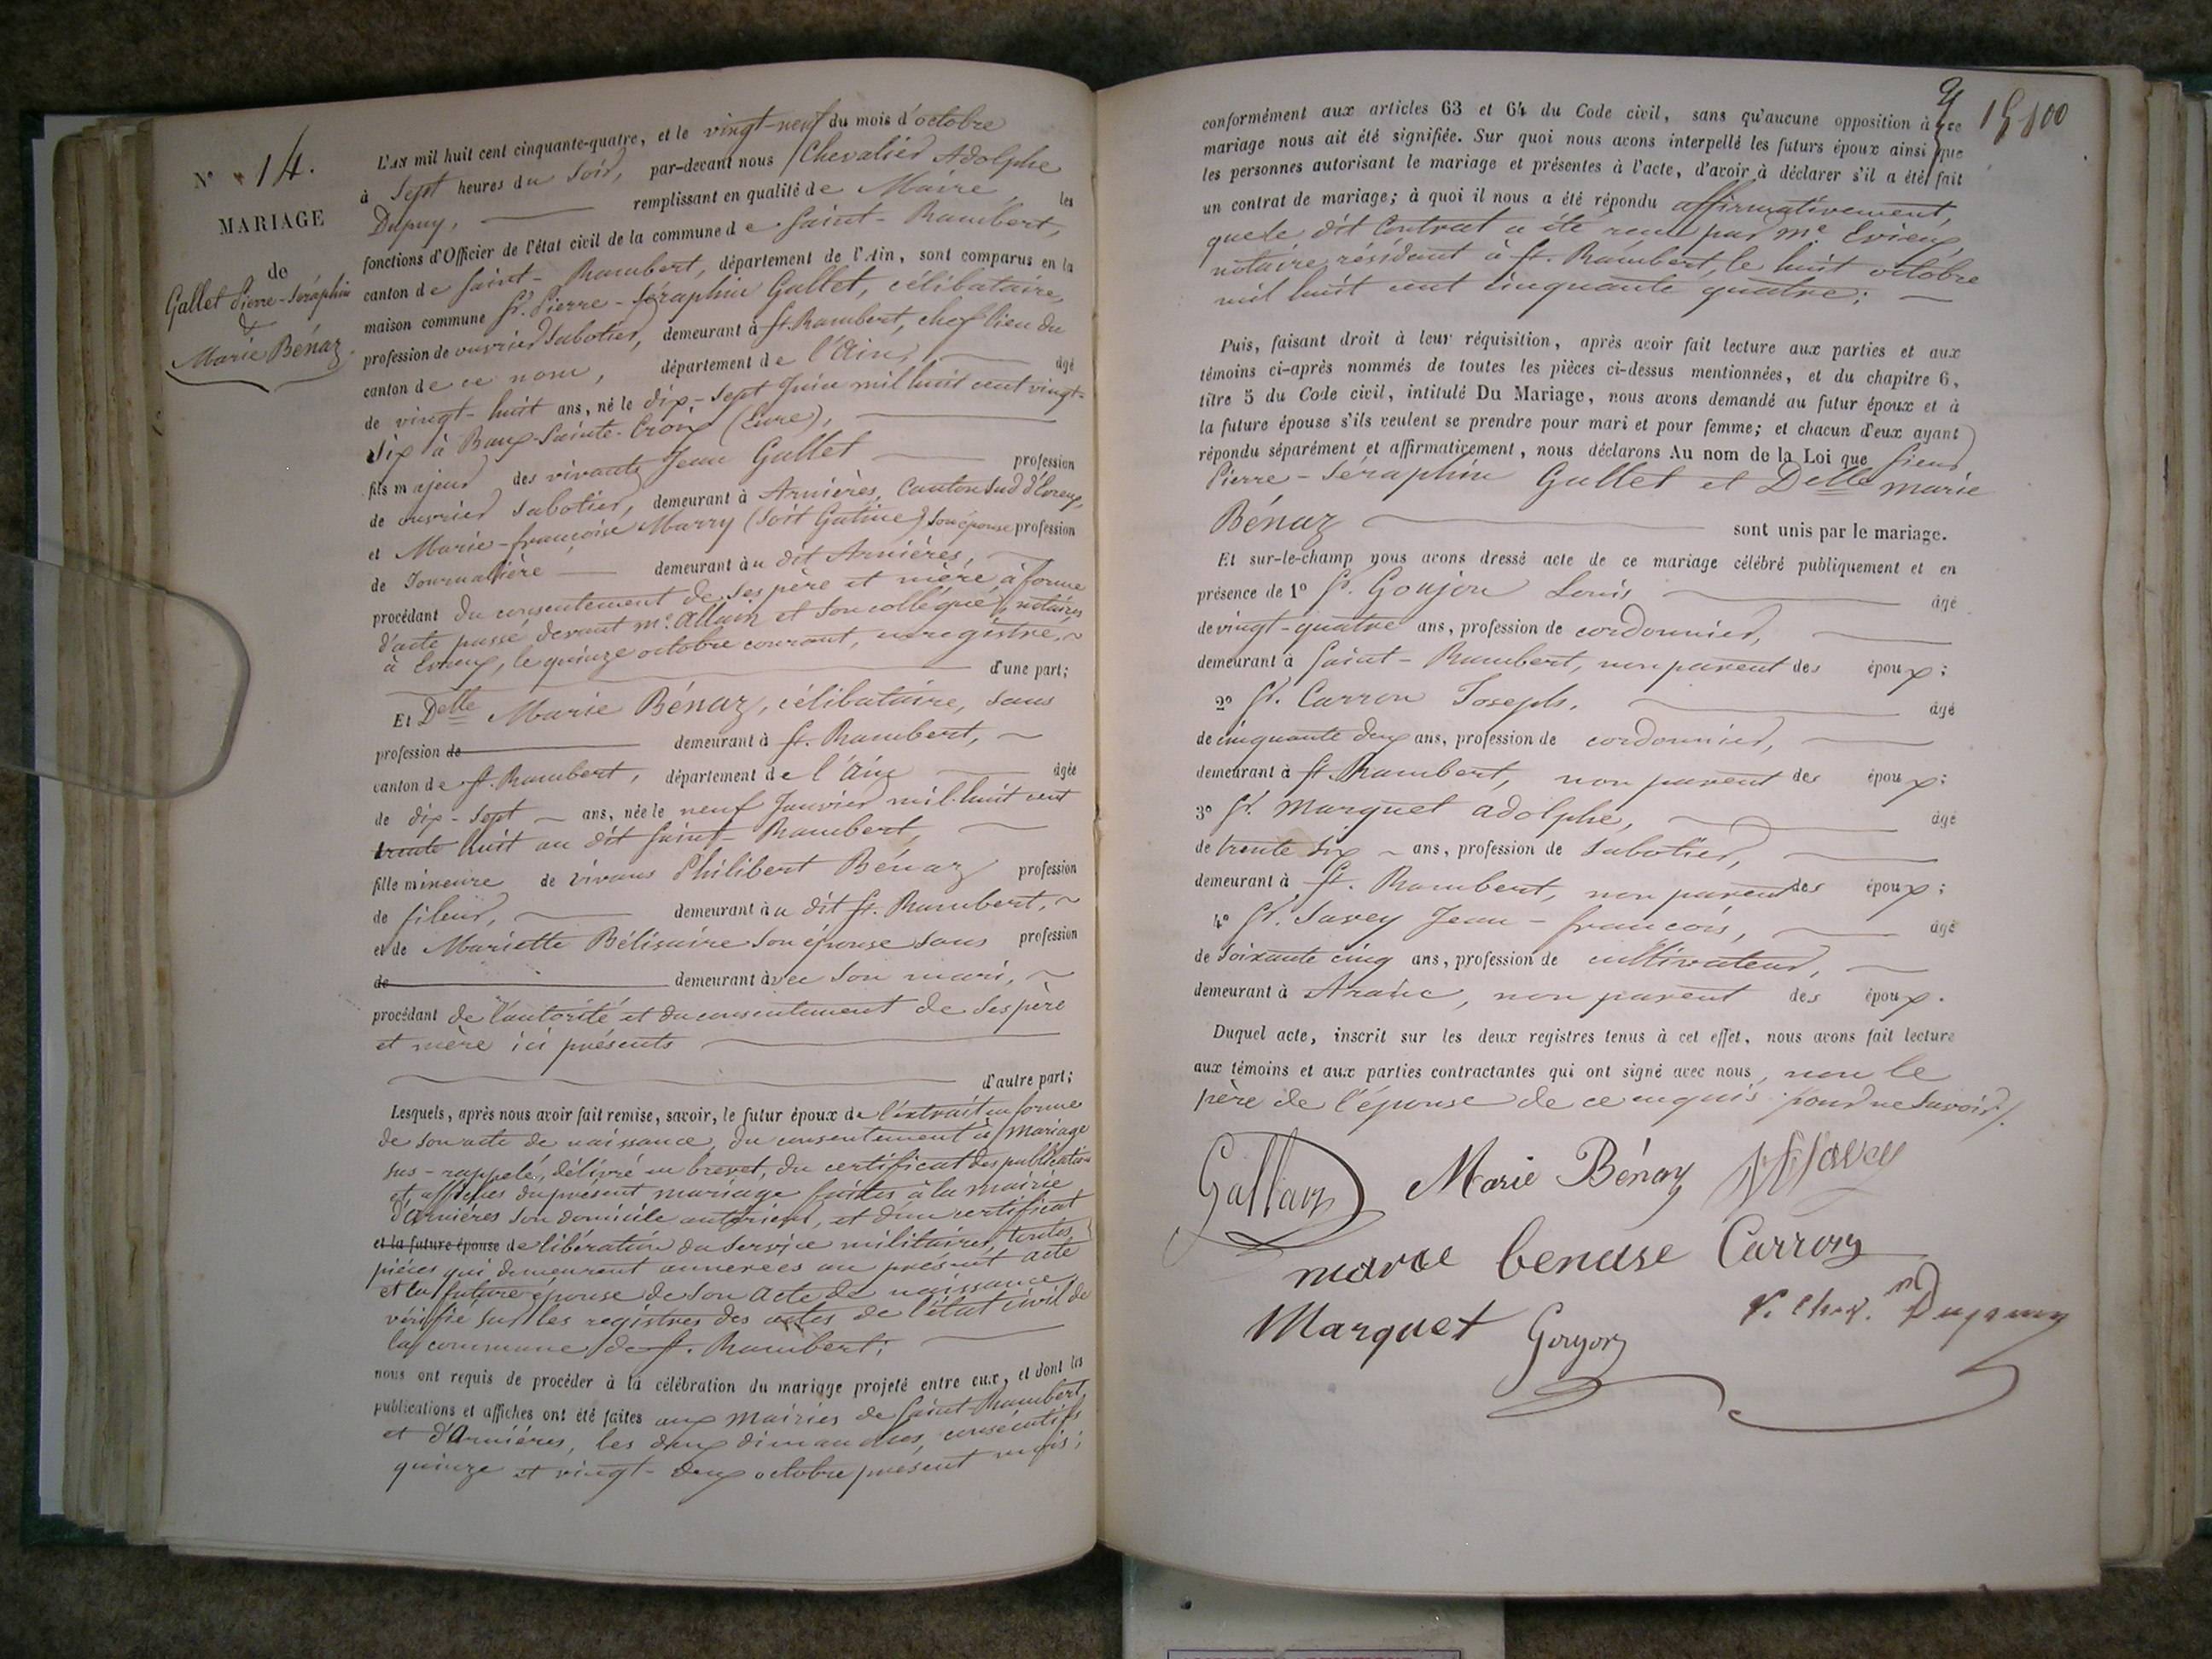 N° 14.
MARIAGE
de
Gallet Pierre-Séraphin
&
Marie Bénaz
L'AN mil huit cent cinquante-quatre, et le vingt-neuf du mois d'octobre
à Sept heures du Soir, par-devant nous Chevalier Adolphe
Dupuy, remplissant en qualité de Maire les
fonctions d'Officier de l'état civil de la commune de Saint-Rambert,
canton de Saint-Rambert, département de l'Ain, sont comparus en la
maison commune Sr. Pierre-Séraphin Gallet, célibataire,
profession de ouvrier Sabotier, demeurant à St. Rambert, chef lieu du
canton de ce nom, département de l'Ain, âgé
de vingt-huit ans, né le dix-sept Juin mil huit cent vingt-
Six à Baux-Sainte-Croix (Eure),
fils majeur des vivants Jean Gallet profession
de ouvrier Sabotier, demeurant à Arnières, Canton Sud d'Evreux,
et Marie-françoise Marry (Soit Gatine) Son épouse profession
de Journalière demeurant au dit Arnières,
procédant du consentement de Ses père et mère à forme
d'acte passé devant Me. Allain et Son collègue, notaires
à Evreux, le quinze octobre courant, enregistré,
d'une part;
Et Delle Marie Bénaz, célibataire, Sans
profession de demeurant à St. Rambert,
canton de St. Rambert, département de l'Ain âgée
de dix-Sept ans, née le neuf Janvier mil huit cent
trente huit au dit Saint-Rambert,
fille mineure de vivans Philibert Bénaz profession
de fileur, demeurant au dit St. Rambert,
et de Mariette Bélisaire Son épouse Sans profession
de demeurant avec Son mari,
procédant de l'autorité et du consentement de Ses père
et mère ici présents
d'autre part;
Lesquels, après nous avoir fait remise, savoir, le futur époux de l'extrait en forme
de Son acte de naissance, du consentement à mariage
Sus-rappelé, délivré en brevet, du certificat des publications
et affiches du présent mariage faites à la mairie
d'Arnières Son domicile antérieur, et d'un certificat
et la future épouse de libération du Service militaire, toutes
pièces qui demeurent annexées au présent acte
et la future épouse de Son Acte de naissance
vérifié Sur les registres des actes de l'état civil de
la commune de St. Rambert;
nous ont requis de procéder à la célébration du mariage projeté entre eux, et dont les
publications et affiches ont été faites aux Mairies de Saint-Rambert,
et d'Arnières, les deux dimanches, consécutifs
quinze et vingt-deux octobre présent mois;
conformément aux articles 63 et 64 du Code civil, sans qu'aucune opposition à ce
mariage nous ait été signifiée. Sur quoi nous avons interpellé les futurs époux ainsi que
les personnes autorisant le mariage et présentes à l'acte, d'avoir à déclarer s'il a été fait
un contrat de mariage; à quoi il nous a été répondu affirmativement,
que le dit Contrat a été reçu par Me Evieux,
notaire résidant à St. Rambert, le huit octobre
mil huit cent cinquante quatre;
Puis, faisant droit à leur réquisition, après avoir fait lecture aux parties et aux
témoins ci-après nommés de toutes les pièces ci-dessus mentionnées, et du chapitre 6,
titre 5 du Code civil, intitulé Du Mariage, nous avons demandé au futur époux et à
la future épouse s'ils veulent se prendre pour mari et pour femme; et chacun d'eux ayant
répondu séparément et affirmativement, nous déclarons Au nom de la Loi que Sieur
Pierre-Séraphin Gallet et Delle Marie
Bénaz sont unis par le mariage.
Et sur-le-champ nous avons dressé acte de ce mariage célébré publiquement et en
présence de 1° Sr. Goujon Louis âgé
de vingt-quatre ans, profession de cordonnier,
demeurant à Saint-Rambert, non parent des époux;
2° Sr. Carron Joseph, âgé
de cinquante deux ans, profession de cordonnier,
demeurant à St. Rambert, non parent des époux;
3° Sr. Marquet Adolphe, âgé
de trente Six ans, profession de Sabotier,
demeurant à St. Rambert, non parent des époux;
4° Sr. Savey Jean-françois, âgé
de Soixante cinq ans, profession de cultivateur,
demeurant à Aranc, non parent des époux.
Duquel acte, inscrit sur les deux registres tenus à cet effet, nous avons fait lecture
aux témoins et aux parties contractantes qui ont signé avec nous, non le
père de l'épouse de ce enquis pour ne Savoir.
Marie Bénaz
Savey
Carron
Marquet